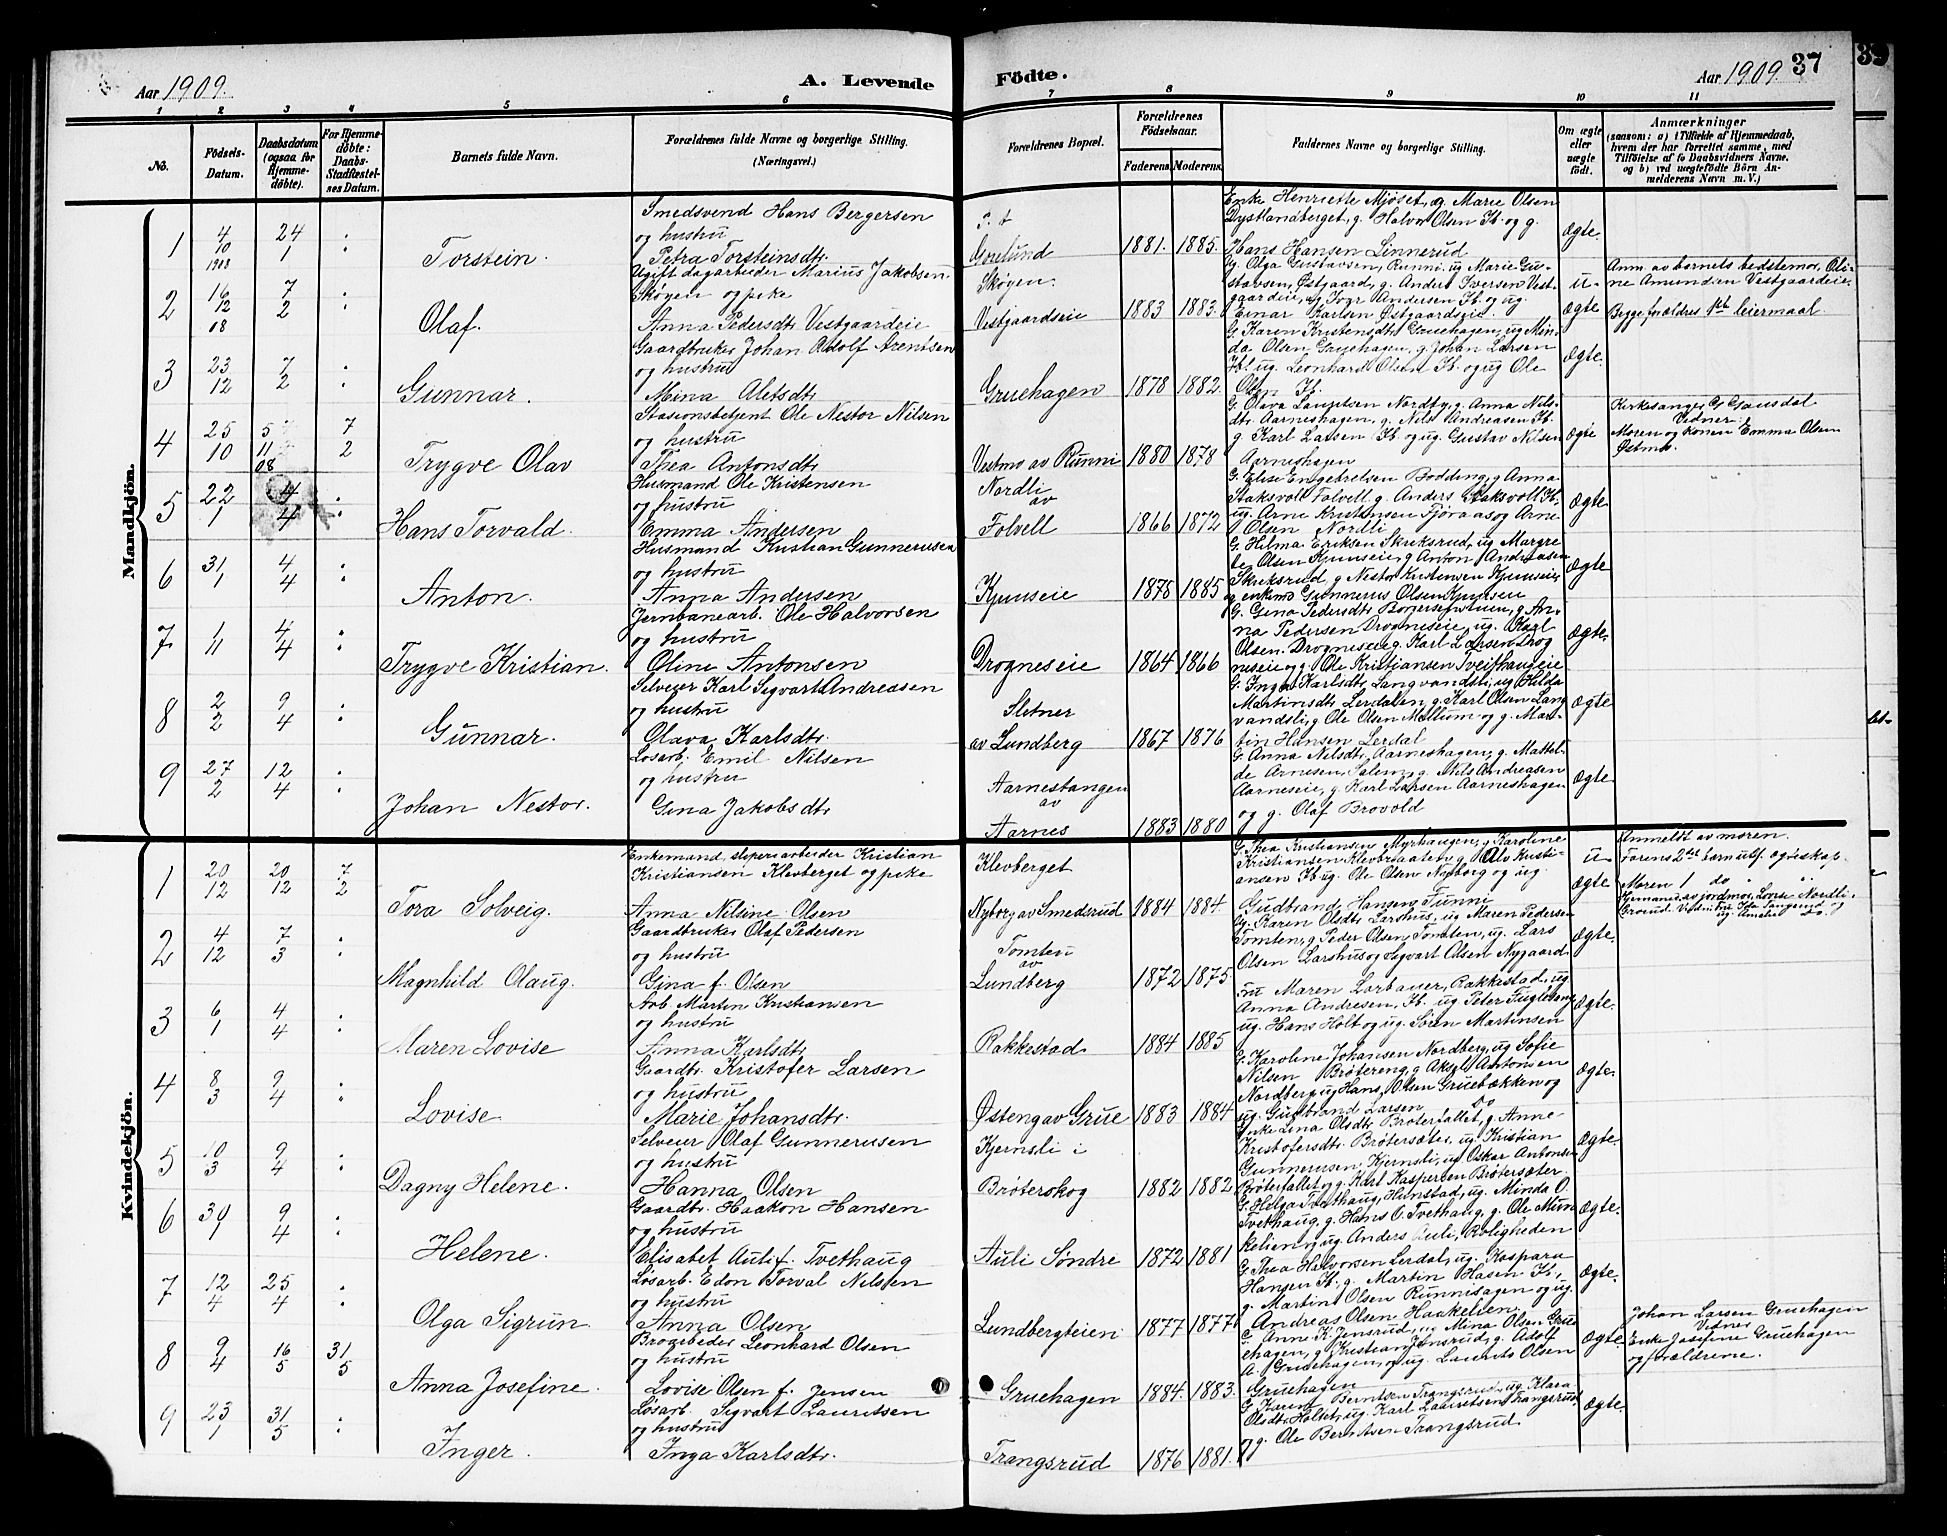 Aar 1909.
A. Levende
Födte.
Aar 1909.
37
1 2 3 4 5 6 7 8 9 10 11
No.
Födsels-Datum.
Daabsdatum (ogsaa for Hjemme-döbte).
For Hjemme-döbte: Daabs-Stadfæstel-ses Datum.
Barnets fulde Navn.
Forældrenes fulde Navne og borgerlige Stilling.
(Næringsvei.)
Forældrenes Bopæl.
Forældrenes Födselsaar.
Faderens.
Moderens.
Faddernes Navne og borgerlige Stilling.
Om ægte eller uægte født.
Anmærkninger
(saasom: a) i Tilfælde af Hjemmedaab,
hvem der har forrettet samme, med
Tilföielse af to Daabsvidners Navne.
og b) ved uægtefödte Börn An-
melderens Navn m. V.)
Mandkjön.
1
4/10 1908
24/1
Torstein.
Smedsvend Hans Bergersen
og hustru
Petra Torsteinsdtr.
1881. 1885.
Enke Henriette Mjøset, ug Marie Olsen
Dystlandberget, g. Halvor Olsen Ib. og g.
Hans Hansen Linnerud
Ægte.
2
16/12 08
7/2
Olaf.
Ugift dagarbeider Marius Jakobsen
Skøyen og pike
Anna Pedersdtr Vestgaardeie
Skøyen.
Vestgaardseie
1883 1883.
Ug. Olga Gustavsen, Runni, ug Marie Gu-
stavsen, Østgaard, g. Anders Iversen Vest-
gaardeie, ug Ivar Andersen Ib. og ug.
Einar Karlsen Østgaardseie.
u-
ægte
Anm. av barnets bedstemor, Oli-
ne Amundsen Vestgaardeie.
Begge forældres 1ste leiermaal.
3
23/12
7/2
Gunnar.
Gaardbruker Johan Adolf Arentsen
og hustru
Mina Aletsdtr
Gruehagen
1878 1882.
G. Karen Kristensdtr Gruehagen, ug Min-
da Olsen Gruehagen, g. Johan Larsen
Ib. ug. Leonhard Olsen Ib. og ug Ole
Olsen Ib.
Ægte.
4
25/10
5/11 08
7/2
Trygve Olav
Stasionsbetjent Ole Nestor Nilsen
og hustru
Thea Antonsdtr
Vestmo av Runni
1880 1878
G. Olava Lauritsen Nordby, g. Anna Nils-
dtr. Aarneshagen, g. Nils Andreasen Ib.
g. Karl Larsen Ib. og ug. Gustav Nilsen
Aarneshagen
Ægte
Kirkesanger G. Gausdal
Vidner:
Moren og konen Emma Olsen
Østmo.
5
22/1
4/4
Hans Torvald.
Husmand Ole Kristensen
og hustru
Emma Andersen
Nordli
av
Folvell
1866 1872
G. Elise Engebretsen Bodding, g Anna
Staksvoll Folvell g. Anders Staksvoll Ib.
ug. Arne Kristensen Fjøraas og Arne
Olsen Nordli
Ægte.
6
31/1
4/4
Anton.
Husmand Kristian Gunnerusen
og hustru
Anna Andersen
Kjunseie
1878 1885
G. Hilma Eriksen Skriksrud, ug Margre
te Olsen Kjunseie, g Anton Andreasen
Skriksrud, g Nestor Kristensen Kjunseie
og enkemd Gunnerus Olsen Kjunseie
Ægte
7
1/11
4/4
Trygve Kristian.
Jernbanearb. Ole Halvorsen
og hustru
Oline Antonsen
Drogneseie
1864 1866
na Pedersen Drogneseie, ug. Karl
Olsen. Drogneseie g. Karl Larsen Drog
neseie og g. Ole Kristiansen Tveithaugeie
Ægte.
8
2/2
9/4
Gunnar.
Selveier Karl Sigvart Andreasen
og hustru
Olava Karlsdtr.
Sletner
av Lundberg
1867 1876
G. Inga Karlsdtr. Langvandsli, ug Hilda
Martinsdtr Lerdalen, g. Karl Olsen Lang
vandsli, g Ole Olsen Mellum og g. Mar-
tin Hansen Lerdal
Ægte
9
27/2
12/4
Johan Nestor.
Løsarb. Emil Nilsen
og hustru
Gina Jakobsdtr
Aarnestangen
av
Aarnes
1883 1880
G. Anna Nilsdtr, Aarneshagen, g. Mattel-
de Arnesen, Salem, g. Nils Andreasen
Aarneseie, g. Karl Larsen Aarneshagen
og g. Olaf Brovold
Ægte.
Kvindekjön.
1
20/12
20/12
7/2
Tora Solveig.
Enkemand, sliperiarbeider Kristian
Kristiansen Klevberget og pike
Anna Nilsine Olsen
Klevberget
Nyborg av Smedsrud
1884 1884.
G. Thea Kristiansen Myrhaugen, g. Karoline
Kristiansen Klevbraaten, g. Olv Kristi-
ansen Ib. ug. Ole Olsen Nyborg og ug.
Gudbrand Hansen, Funni
u-
ægte
Anmeldt av moren.
Farens 2det barn utf. ægteskap.
Moren 1 do
2
4/12
7/3
Magnhild Olaug.
Gaardbruker Olaf Pedersen
og hustru
Gina f. Olsen
Tomten
av
Lundberg
1872 1875.
Ug. Karen Olsdtr Larshus, ug Maren Pedersen
Tomten, g Peder Olsen Tomten, ug. Lars
Olsen Larshus og Sigvart Olsen Nygaard.
Ægte.
3
6/1
4/4
Maren Lovise
Arb. Martin Kristiansen
og hustru
Anna Karlsdtr
Rakkestad
1884 1885
Fru Maren Lorbauer, Rakkestad, ug
Anna Andresen, Ib. ug Peter Fugleseng
ug. Hans Holt og ug. Søren Martinsen
Ægte.
4
8/3
9/4
Lovise.
Gaardbr. Kristofer Larsen
og hustru
Marie Johansdtr.
Østeng av Grue
1883 1884
G. Karoline Johansen Nordberg, ug Sofie
Nilsen Brøtereng, g Aksel Antonsen
Nordberg ug Hans Olsen Gruebækken og
ug. Gudbrand Larsen do
Ægte.
5
10/3
9/4
Dagny Helene.
Selveier Olaf Gunnerusen
og hustru
Hanna Olsen
Kjernsli i
Brøterskog
1882 1882
Enke Lina Olsdtr Brøterfallet, g. Anne
Kristofersdtr. Brøtersæter, ug. Kristian
Gunnerusen, Kjernsli, ug Oskar Antonsen
Brøterfallet og g. Karl Kaspersen Brøtersæter.
Ægte.
6
9/4
Helene.
Gaardbr. Haakon Hansen
og hustru
Elisabet Auli f. Tvethaug
Auli Søndre
1872 1881
G. Helga Tvethaug, Hunstad, ug. Minda O.
Tvethaug, g. Hans O. Tvethaug, g. Ole Mun
kelien, ug. Anders Auli, Roligheden
Ægte.
7
12/4
25/4
Olga Sigrun.
Løsarb. Edon Torval Nilsen
og hustru
Anna Olsen
Lundbergteien
1877 1877
G. Thea Halvorsen Lerdal, ug. Kaspara
Hansen Ib. g. Martin Hasen Ib.,
g. Martin Olsen Runnisagen og ug.
Andreas Olsen Haakelien.
Ægte.
8
9/4
16/5
31/5
Anna Josefine.
Leonhard Olsen
og hustru
Lovise Olsen f. Jensen
Gruehagen
1884. 1883.
G. Anne K. Jensrud, ug Mina Olsen Gru-
ehagen, g. Kristian Jensrud, g. Adolf
A. Gruehagen, og ug. Laurits Olsen
Gruehagen
Ægte.
Johan Larsen Gruehagen
Vidner
Enke Josefine Gruehagen
og forældrene.
9
23/1
31/5
Inger.
Løsarb. Sigvart Lauritsen
og hustru
Inga Karlsdtr.
Trangsrud
1876 1881.
G. Karen Berntsen Trangsrud, ug. Klara
Olsdtr. Holtet, ug. Karl Lauritsen Trangsrud
og g. Ole Berntsen Trangsrud.
Ægte.